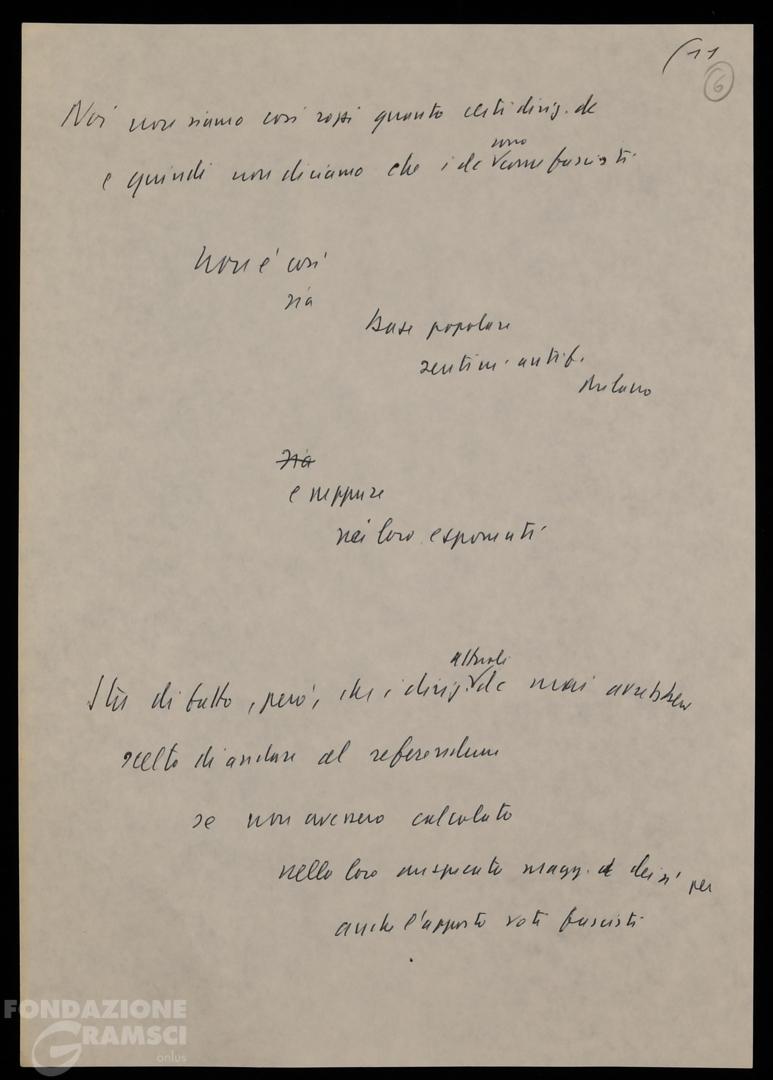 (11
6
Noi non siamo così rozzi quanto certi dirig. dc
sono
e quindi non diciamo che i dc come fascisti
Non è così
sia
base popolare
sentim. antif.
Milano
sia
e neppure
nei loro esponenti
attuali
Sta di fatto, però, che i dirig. dc mai avrebbero
scelto di andare al referendum
se non avessero calcolato
nella loro auspicata magg. di sì per
anche l'apporto voti fascisti
FONDAZIONE
GRAMSCI
onlus